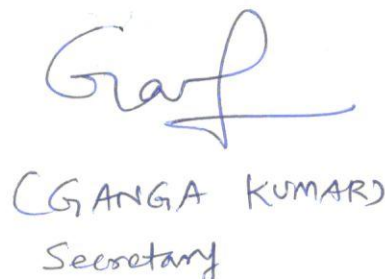 (GANGA KUMAR)
Secretary